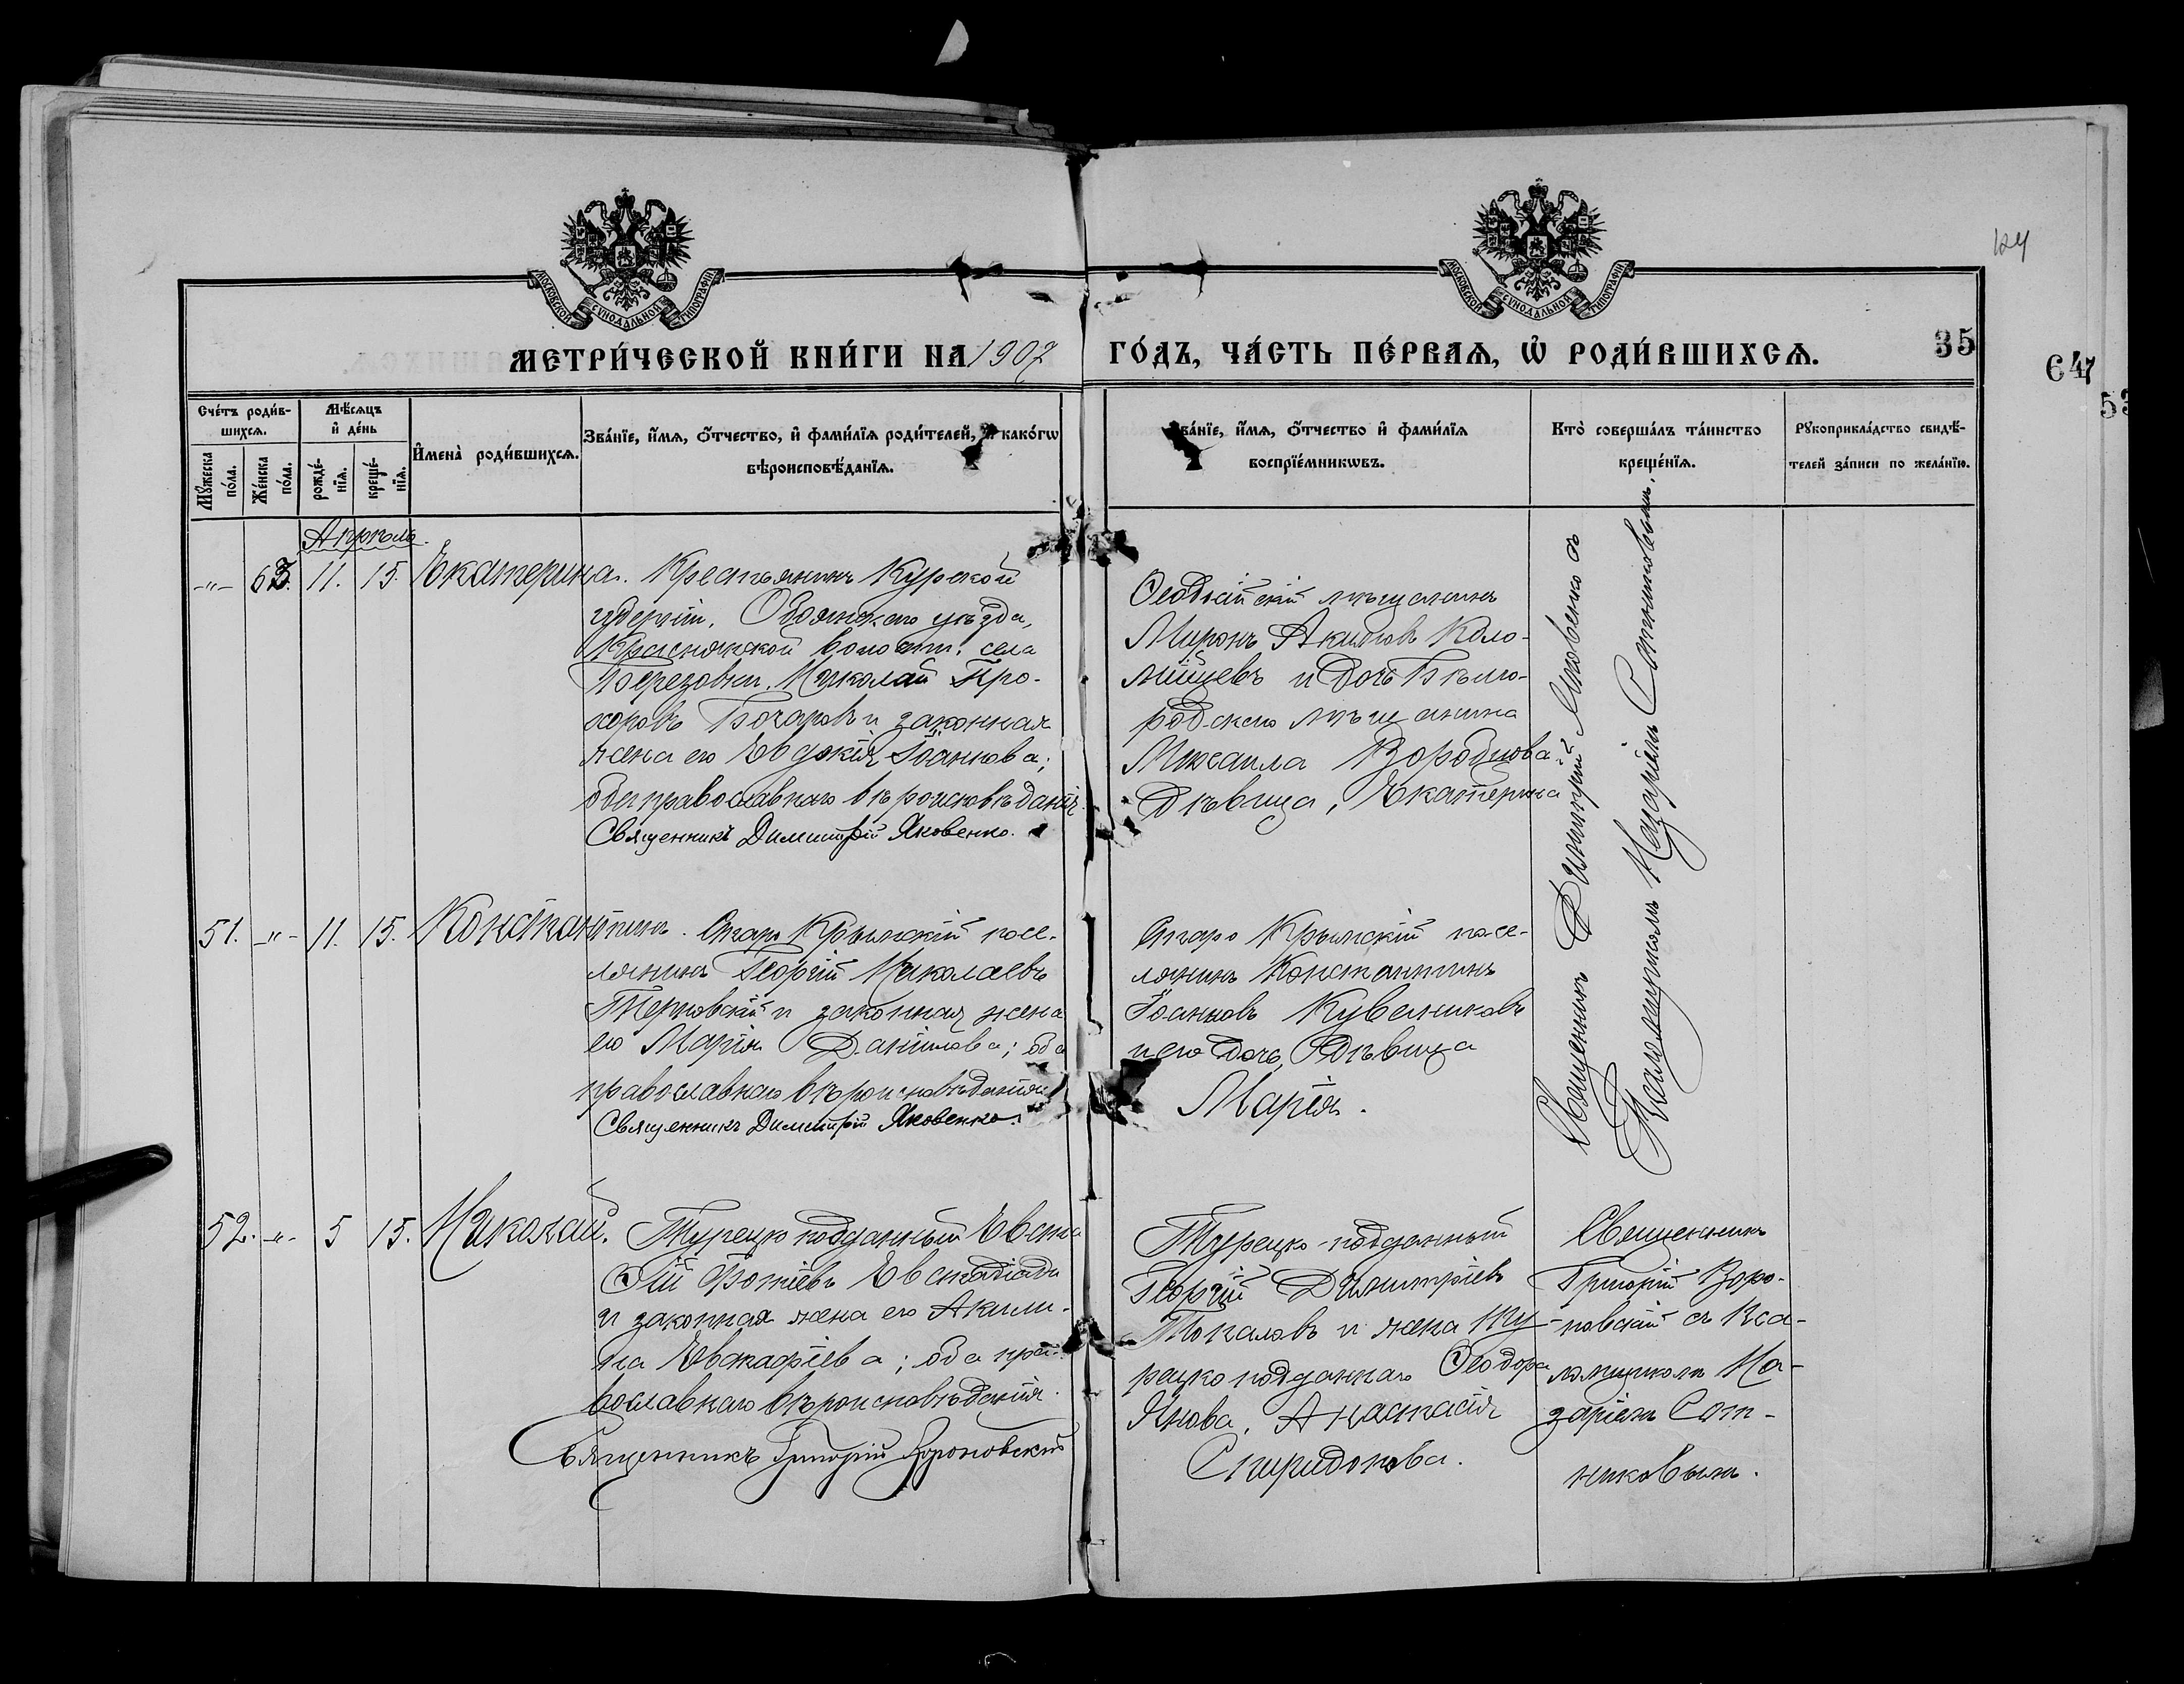 МОСКОВСКОЙ СѴНОДАЛЬНОЙ ТИПОГРАФІИ
МОСКОВСКОЙ СѴНОДАЛЬНОЙ ТИПОГРАФІИ
124
МЕТРИ́ЧЕСКОЙ КНИ́ГИ НА 1907
ГО́ДЪ, ЧА́СТЬ ПЕ́РВАЯ, Ѡ҆ РОДИ́ВШИХСЯ.
35
647
53
Счетъ родившихся.
Мѣсяцъ и день
Мужеска пола.
Женска пола.
рожденія.
крещенія.
Имена родившихся.
Званіе, имя, отчество, и фамилія родителей, и какогѡ
вѣроисповѣданія.
Званіе, имя, отчество и фамилія
воспріемникѡвъ.
Кто совершалъ таинство
крещенія.
Рукоприкладство свидѣ-
телей записи по желанію.
Апрѣль.
-"- 63. 11. 15. Екатерина.
Крестьянинъ Курской
губерніи, Обоянскаго уѣзда,
волости, села
Николай Про-
хоровъ Бочаровъ и законная
жена его Евдокія Іоаннова;
оба православнаго вѣроисповѣданія.
Священникъ Димитрій Яковенко.
Ѳеодосійскій мѣщанинъ
Миронъ Акимовъ Коло-
мійцевъ и дочь Бѣлго-
родскаго мѣщанина
Михаила
дѣвица, Екатерина
Священникъ Димитрій Яковенко съ
Псаломщикомъ Назаріемъ Сотниковымъ.
51. -"- 11. 15. Константинъ.
Старо Крымскій посе-
лянинъ Георгій Николаевъ
Терновскій и законная жена
его Марія Даніилова; оба
православнаго вѣроисповѣданія.
Священникъ Димитрій Яковенко.
Старо Крымскій посе-
лянинъ Константинъ
Іоанновъ
и его дочь, дѣвица
Марія.
52. -"- 5 15. Николай.
Турецко подданный Евста-
ѳій Фотіевъ
и законная жена его Акили-
на; оба пра-
вославнаго вѣроисповѣданія.
Священникъ Григорій Вороновскій
Турецко-подданный
Георгій Димитріевъ
Токаловъ и жена Ту-
рецко подданнаго Ѳеодора
Янова, Анастасія
Спиридонова.
Священникъ
Григорій Воро-
новскій съ Пса-
ломщикомъ На-
заріемъ Сот-
никовымъ.